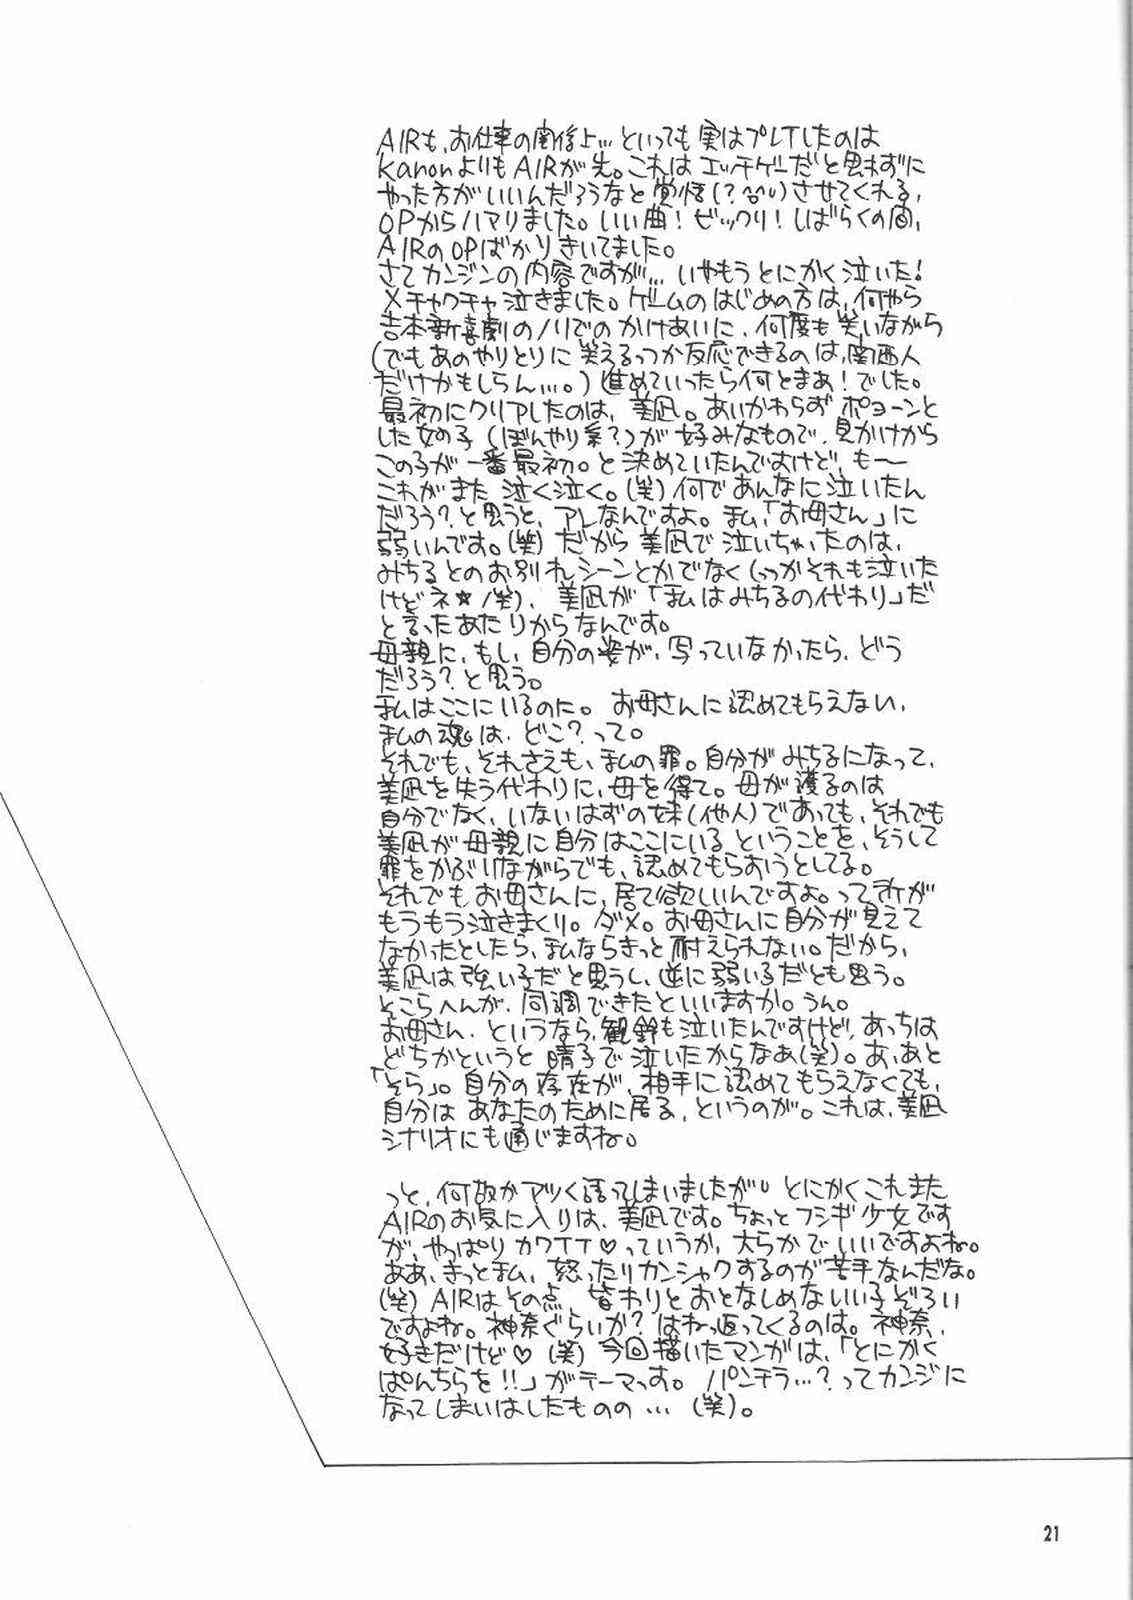 AIRも、お仕事の関係上…といっても実はプレイしたのは
KanonよりもAIRが先。これはエッチゲーだと思わずに
やった方がいいんだろうなと覚悟(?^^;)させてくれる、
OPからハマりました。いい曲!ビックリ!しばらくの間、
AIRのOPばかりきいてました。
さてカンジンの内容ですが… いやもうとにかく泣いた!
メチャクチャ泣きました。ゲームのはじめの方は、何やら
吉本新喜劇のノリでのかけあいに、何度も笑いながら
(でもあのやりとりに笑えるっつか反応できるのは、関西人
だけかもしらん…。)進めていったら何とまあ!でした。
最初にクリアしたのは、美凪。あいかわらずポヨーンと
した女の子(ぼんやり系?)が好みなもので、見かけから
この子が一番最初。と決めていたんですけど、も〜
これがまた泣く泣く。(笑)何であんなに泣いたん
だろう?と思うと、アレなんですよ。私、「お母さん」に
弱いんです。(笑)だから美凪で泣いちゃったのは、
みちるとのお別れシーンとかでなく(っつかそれも泣いた
けどネ★/笑)、美凪が「私はみちるの代わり」だ
と言ったあたりからなんです。
母親に、もし、自分の姿が、写っていなかったら、どう
だろう?と思う。
私はここにいるのに。お母さんに認めてもらえない、
私の魂は、どこ?って。
それでも、それさえも、私の罪。自分がみちるになって、
美凪を失う代わりに、母を得て。母が護るのは
自分でなく、いないはずの妹(他人)であっても、それでも
美凪が母親に自分はここにいるということを、そうして
罪をかぶりながらでも、認めてもらおうとしてる。
それでもお母さんに、居て欲しいんですよ。って所が
もうもう泣きまくり。ダメ。お母さんに自分が見えて
なかったとしたら、私ならきっと耐えられない。だから、
美凪は強い子だと思うし、逆に弱いるだとも思う。
そこらへんが、同調できたといいますか。うん。
お母さん、というなら、観鈴も泣いたんですけど、あっちは
どちかというと晴子で泣いたからなあ(笑)。あ、あと
「そら」。自分の存在が、相手に認めてもらえなくても、
自分はあなたのために居る、というのが。これは、美凪
シナリオにも通じますね。

っと、何故かアツく語ってしまいましたが。とにかくこれまた
AIRのお気に入りは、美凪です。ちょっとフシギ少女です
が、やっぱりカワイイ♡っていうか、大らかでいいですよね。
ああ、きっと私、怒ったりカンシャクするのが苦手なんだな。
(笑)AIRはその点、皆わりとおとなしめないい子ぞろい
ですよね。神奈ぐらいか?はねっ返ってくるのは。神奈、
好きだけど♡(笑)今回描いたマンガは、「とにかく
ぱんちらを!!」がテーマっす。パンチラ…?ってカンジに
なってしまいはしたものの…(笑)。
21